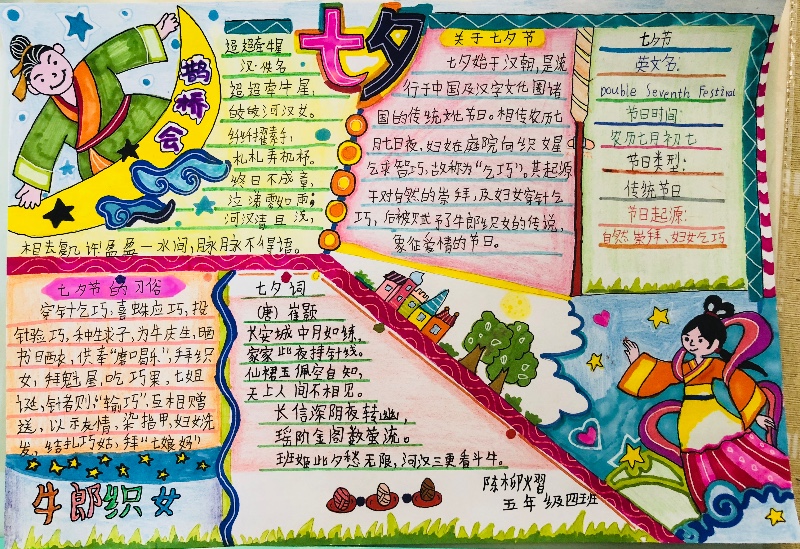 七夕
鹊桥会
迢迢牵牛星
汉·佚名
迢迢牵牛星,
皎皎河汉女。
纤纤擢素手,
札札弄机杼。
终日不成章,
泣涕零如雨;
河汉清且浅,
相去复几许盈盈一水间,脉脉不得语。
关于七夕节
七夕始于汉朝,是流
行于中国及汉字文化圈诸
国的传统文化节日。相传农历七
月七日夜,妇女在庭院向织女星
乞求智巧,故称为“乞巧”。其起源
于对自然的崇拜,及妇女穿针乞
巧,后被赋予了牛郎织女的传说,
象征爱情的节日。
七夕节
英文名:
Double Seventh Festival
节日时间:
农历七月初七
节日类型:
传统节日
节日起源:
自然崇拜、妇女乞巧
七夕节的习俗
穿针乞巧,喜蛛应巧,投
针验巧,种生求子,为牛庆生,晒
书日西衣,供奉“磨口曷乐”,拜织
女,拜魁星,吃巧果,七姐
诞,针者则“输巧”,互相赠
送,以示友情,染指甲,妇女洗
发,结扎巧姑,拜“七娘妈”
牛郎织女
七夕词
(唐)崔颢
长安城中月如练,
家家此夜持针线。
仙裙玉佩空自知,
天上人间不相见。
长信深阴夜转幽,
瑶阶金阁数萤流。
班姬此夕愁无限,河汉三更看斗牛。
陈柳熠
五年级四班